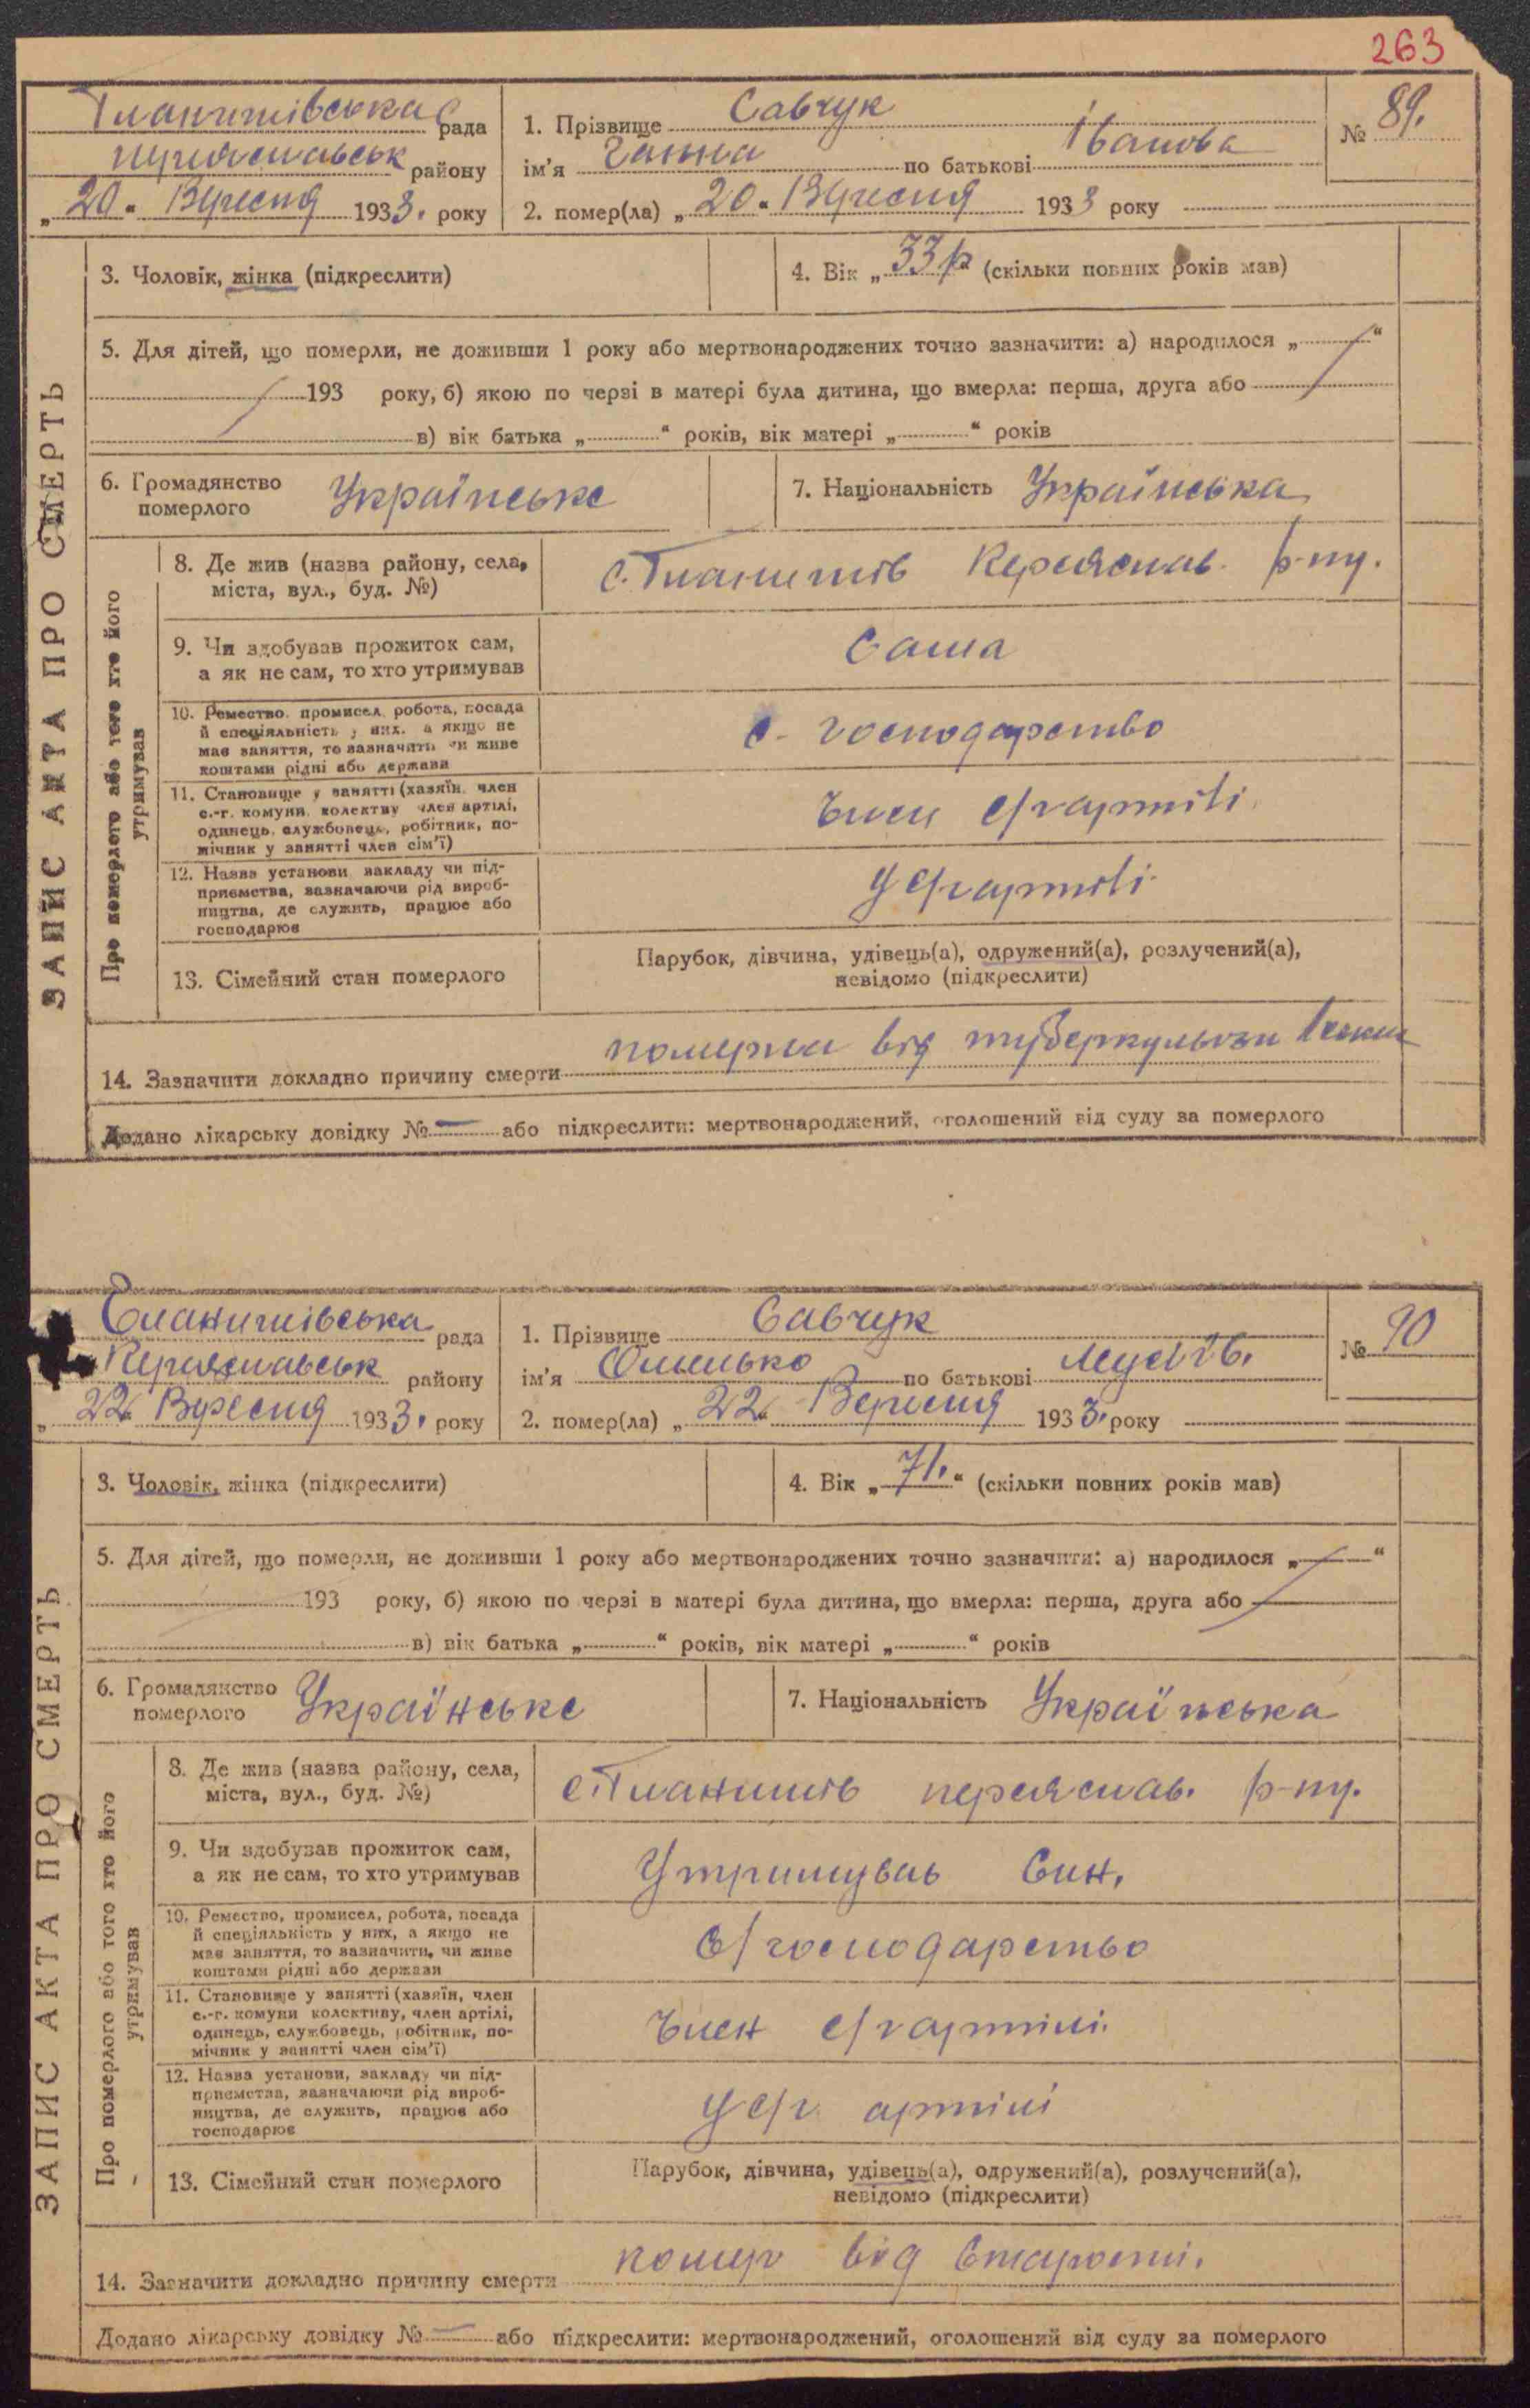 263
Гланишівська рада
Переяславськ району
„20“ Вересня 1933. року
1. Прізвище Савчук
ім'я Ганна по батькові Іванова
2. помер(ла) „20“ Вересня 1933 року
№ 89.
ЗАПИС АКТА ПРО СМЕРТЬ
3. Чоловік, жінка (підкреслити)
4. Вік „33 р“ (скільки повних років мав)
5. Для дітей, що померли, не доживши 1 року або мертвонароджених точно зазначити: а) народилося „ “
193 року, б) якою по черзі в матері була дитина, що вмерла: перша, друга або
в) вік батька „ “ років, вік матері „ “ років
6. Громадянство
померлого
Українське
7. Національність Українська
Про померлого або того хто його
утримував
8. Де жив (назва району, села,
міста, вул., буд. №)
с. Гланишів Переяслав. р-ну.
9. Чи здобував прожиток сам,
а як не сам, то хто утримував
Сама
10. Ремество, промисел, робота, посада
й спеціяльність у них, а якщо не
має заняття, то зазначити чи живе
коштами рідні або держави
с. господарство
11. Становище у занятті (хазяїн, член
с.-г. комуни, колективу член артілі,
одинець, службовець, робітник, по-
мічник у занятті член сім'ї)
Член с/г артілі
12. Назва установи закладу чи під-
приємства, зазначаючи рід вироб-
ництва, де служить, працює або
господарює
У с/г артілі
13. Сімейний стан померлого
Парубок, дівчина, удівець(а), одружений(а), розлучений(а),
невідомо (підкреслити)
14. Зазначити докладно причину смерти померла від туберкульози
Додано лікарську довідку № — або підкреслити: мертвонароджений, оголошений від суду за померлого
Гланишівська рада
Переяславськ району
„22“ Вересня 1933. року
1. Прізвище Савчук
ім'я Омелько по батькові Мусіїв.
2. помер(ла) „22“ Вересня 1933. року
№ 90
ЗАПИС АКТА ПРО СМЕРТЬ
3. Чоловік, жінка (підкреслити)
4. Вік „71.“ (скільки повних років мав)
5. Для дітей, що померли, не доживши 1 року або мертвонароджених точно зазначити: а) народилося „ “
193 року, б) якою по черзі в матері була дитина, що вмерла: перша, друга або
в) вік батька „ “ років, вік матері „ “ років
6. Громадянство
померлого
Українське
7. Національність Українська
Про померлого або того хто його
утримував
8. Де жив (назва району, села,
міста, вул., буд. №)
с. Гланишів переяслав. р-ну.
9. Чи здобував прожиток сам,
а як не сам, то хто утримував
Утримував Син.
10. Ремество, промисел, робота, посада
й спеціяльність у них, а якщо не
має заняття, то зазначити, чи живе
коштами рідні або держави
С/господарство
11. Становище у занятті (хазяїн, член
с.-г. комуни колективу, член артілі,
одинець, службовець, робітник, по-
мічник у занятті член сім'ї)
Член с/г артілі.
12. Назва установи, закладу чи під-
приємства, зазначаючи рід вироб-
ництва, де служить, працює або
господарює
У с/г артілі
13. Сімейний стан померлого
Парубок, дівчина, удівець(а), одружений(а), розлучений(а),
невідомо (підкреслити)
14. Зазначити докладно причину смерти помер від Старости.
Додано лікарську довідку № — або підкреслити: мертвонароджений, оголошений від суду за померлого